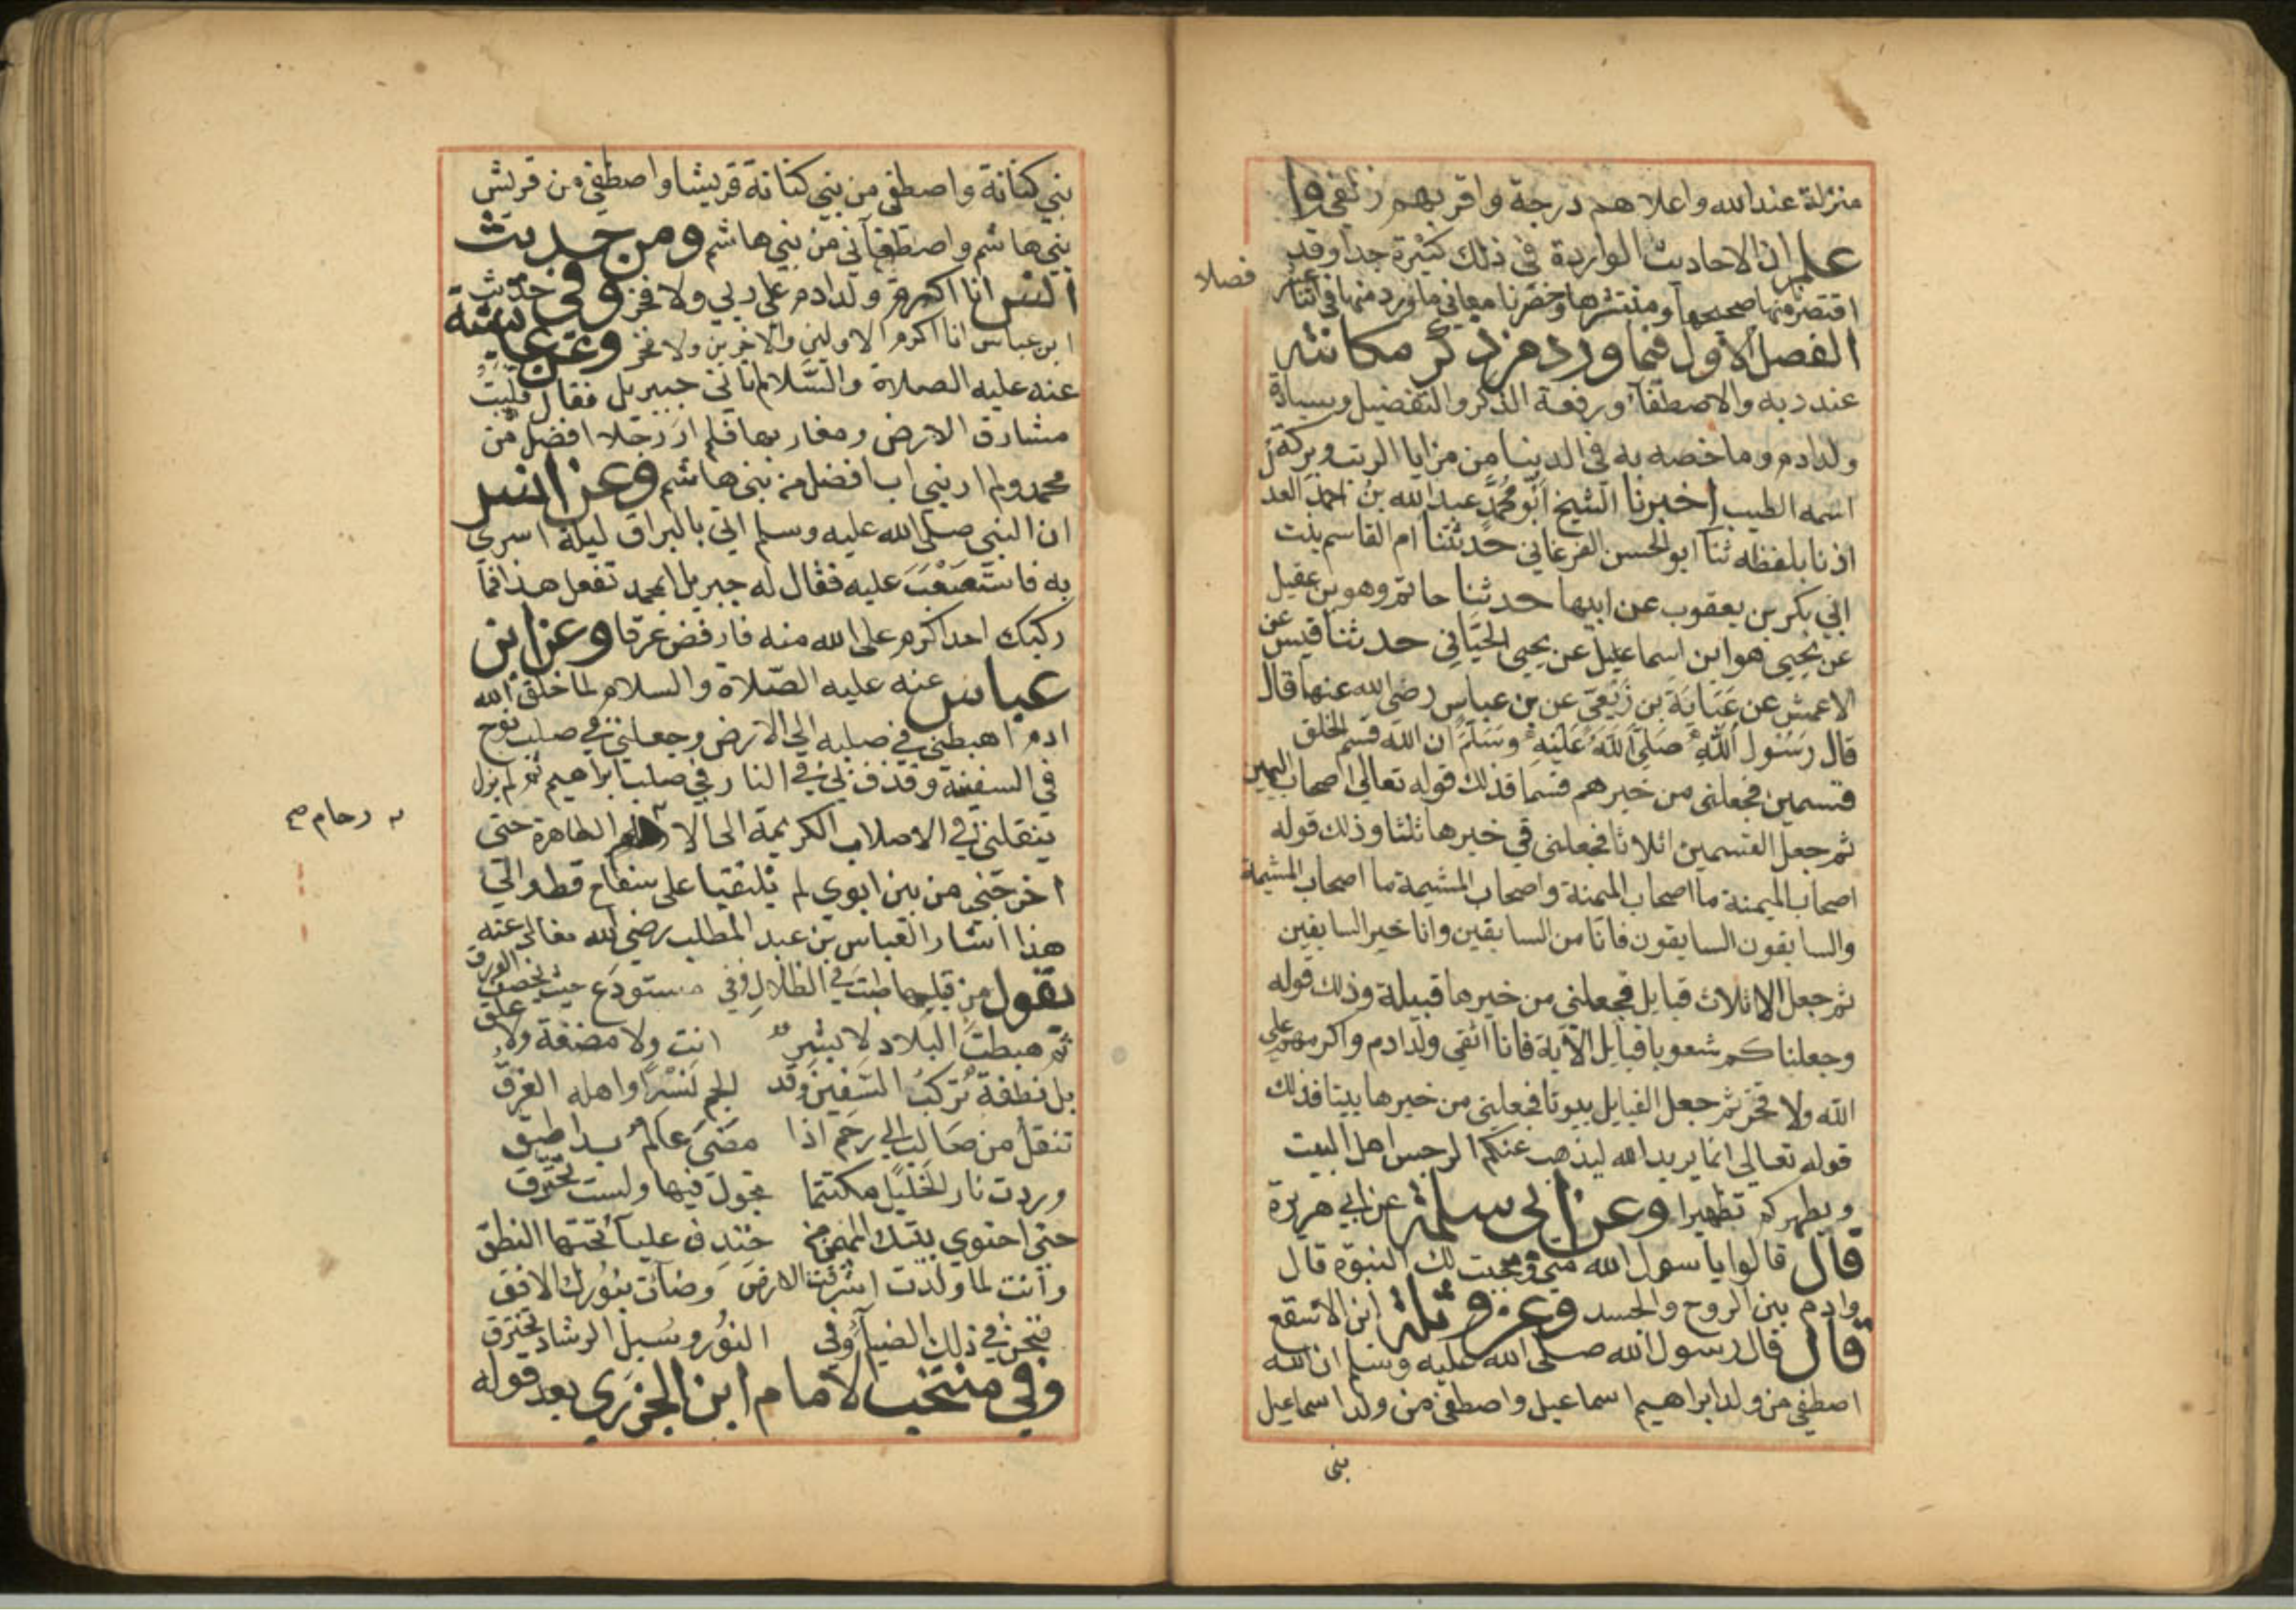 منزلة عند الله واعلاهم درجة واقربهم زلفى وا
علم ان الاحاديث الواردة في ذلك كثيرة جدا وقد
اقتصرنا منها صحيحها ومنتشرها وحصرنا معاني ما ورد منها في اثنا عشر
فصلا
الفصل الاول فيما ورد من ذكر مكانته
عند ربه والاصطفآء ورفعة الذكر والتفضيل وسيادة
ولد ادم وما خصه به في الدينا من مزايا الرتب وبركة
اسمه الطيب اخبرنا الشيخ ابو محمد عبد الله بن احمد العد
اذنا بلفظه ثنا ابو الحسن الفرغاني حدثتنا ام القاسم بنت
ابي بكر بن يعقوب عن ابيها حدثنا حاتم وهو بن عقيل
عن يحيى هو ابن اسماعيل عن يحيى الحماني حدثنا قيس عن
الاعمش عن عباية بن ربعي عن بن عباس رضي الله عنها قال
قال رسول الله صلى الله عليه وسلم ان الله قسم الخلق
قسمين فجعلني من خيرهم قسما فذلك قوله تعالى اصحاب اليمين
ثم جعل القسمين اثلاثا فجعلني في خيرها ثلثا وذلك قوله
اصحاب الميمنة ما اصحاب الميمنة واصحاب المشيمة ما اصحاب المشيمة
والسابقون السابقون فانا من السابقين وانا خير السابقين
ثم جعل الاثلاث قبايل فجعلني من خيرها قبيلة وذلك قوله
وجعلناكم شعوبا قبايل الآية فانا اتقى ولد ادم واكرمهم على
الله ولا فخر ثم جعل القبايل بيوتا فجعلني من خيرها بيتا فذلك
قوله تعالى انما يريد الله ليذهب عنكم الرجس اهل البيت
ويطهركم تطهيرا وعن ابي سلمة عن ابي هريرة
قال قالوا يا سول الله متى وجبت لك النبوة قال
وادم بين الروح والجسد وعن وثلة ابن الاسقع
قال قال رسول الله صلى الله عليه وسلم ان الله
اصطفى من ولد ابراهيم اسماعيل واصطفى من ولد اسماعيل
بنى
بني كنانة واصطفى من بني كنانة قريشا واصطفى من قريش
بني هاشم واصطفآني من بني هاشم ومن حديث
انس انا اكرم ولد ادم على ربي ولا فخر وفي حديث
ابن عباس انا اكرم الاولين والاخرين ولا فخر وعن عايشة
عنه عليه الصلاة والسلام اتاني جبريل فقال قلبت
مشارق الارض ومغاربها فلم ار رجلا افضل من
محمد ولم ار بني اب افضل من بني هاشم وعن انس
ان النبي صلى الله عليه وسلم اتي بالبراق ليلة اسري
به فاستصعب عليه فقال له جبريل ابمحمد تفعل هذا فما
ركبك احد اكرم على الله منه فارفض عرقا وعن ابن
عباس عنه عليه الصلاة والسلام لما خلق الله
ادم اهبطني في صلبه الى الارض وجعلني في صلب نوح
في السفينة وقذف بي في النار في صلب ابراهيم ثم لم يزل
ينقلني في الاصلاب الكريمة الى الا الطاهرة حتى
رحام صح
اخرجني من بين ابوي لم يلتقيا على سفاح قط والى
هذا اشار العباس بن عبد المطلب رضي الله تعالى عنه
بقول من قبلها طبت في الظلال وفي مستودع حيث يخصف الورق
ثم هبطت البلاد لا بشر انت ولا مضغة ولا علق
بل نطفة تركب السفين وقد الجم نسرا واهله الغرق
تنقل من صالب الى رحم اذا مضى عالم بدا طبق
وردت نار الخليل مكتتما تجول فيها ولست تحترق
حتى احتوى بيتك المهيمن خندف عليآ تحتها النطق
وانت لما ولدت اشرقت الارض وضآت بنورك الافق
فنحن في ذلك الضيآ وفي النور وسبل الرشاد نخترق
وفي منتخب الامام ابن الجزري بعد قوله